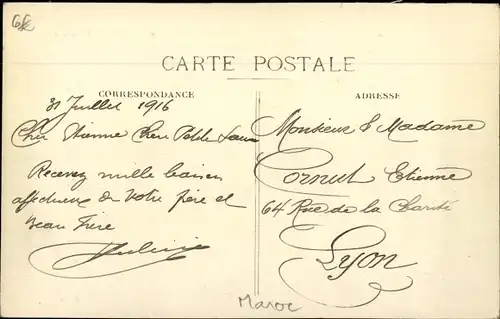 6£
CARTE POSTALE
CORRESPONDANCE
ADRESSE
31 Juillet 1916
Cher Etienne Chère Petite Soeur
Recevez mille baisers
affectueux de votre frère et
beau frère
Monsieur & Madame
Cornut Etienne
64 Rue de la Charité
Lyon
Maroc